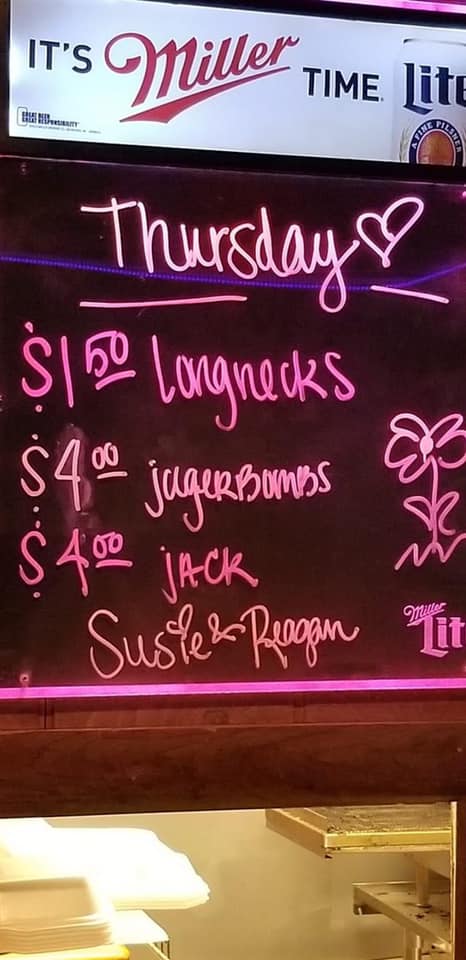 IT'S Miller TIME. Lite
GREAT BEER
GREAT RESPONSIBILITY
A FINE PILSNER
Thursday
$1 50 longnecks
$4 00 jagerBombs
$4 00 JACK
Susie & Reagan
Miller
Lit